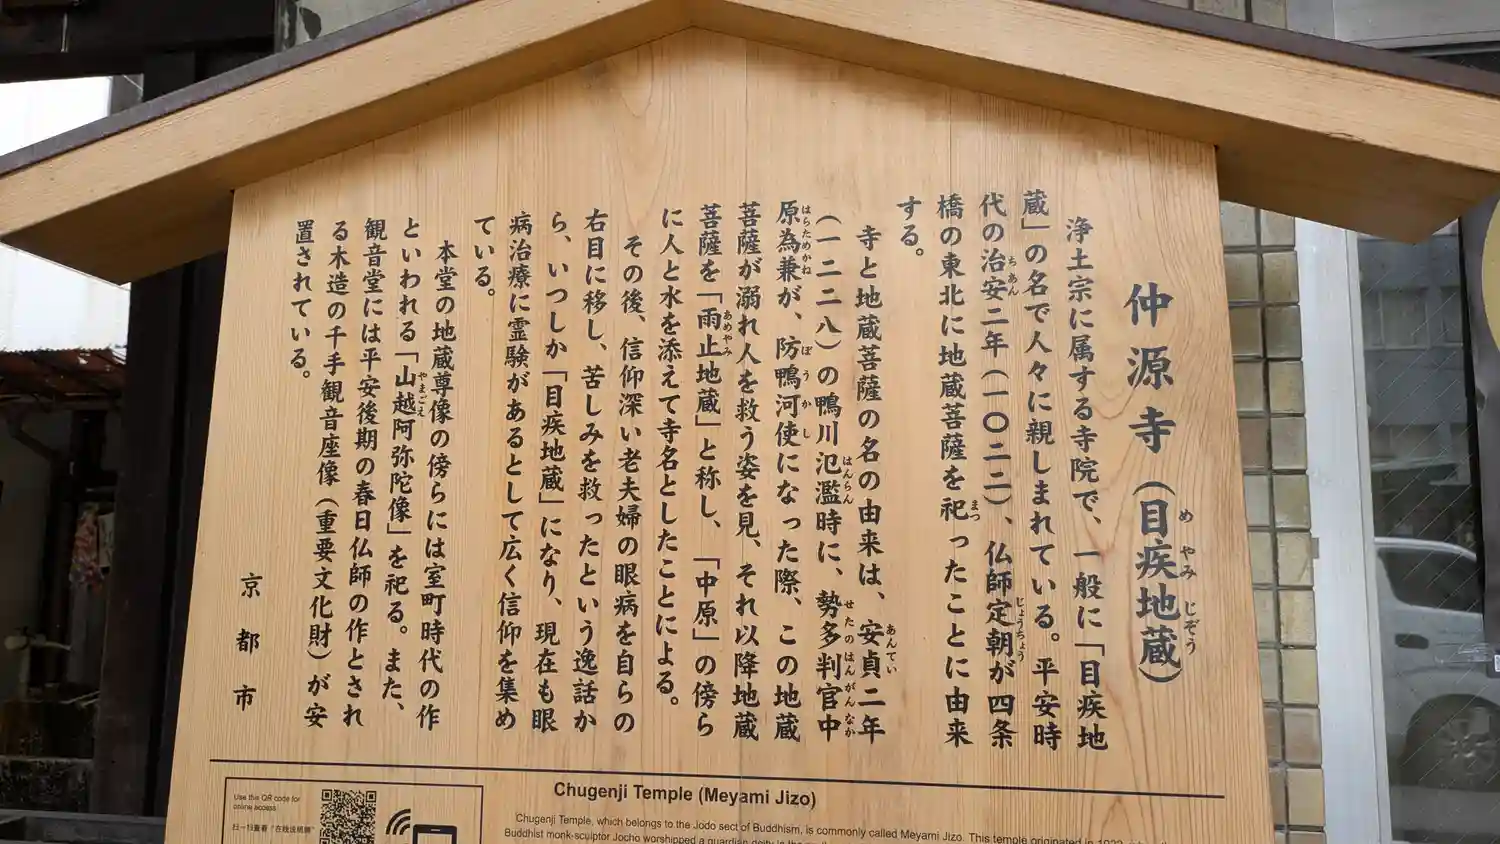 仲源寺（目疾地蔵）
め やみ じぞう
浄土宗に属する寺院で、一般に「目疾地
蔵」の名で人々に親しまれている。平安時
代の治安二年（一〇二二）、仏師定朝が四条
ちあん じょうちょう
橋の東北に地蔵菩薩を祀ったことに由来
まつ
する。
寺と地蔵菩薩の名の由来は、安貞二年
あんてい
（一二二八）の鴨川氾濫時に、勢多判官中
はんらん せたのはんがんなか
原為兼が、防鴨河使になった際、この地蔵
はらためかね ぼうかし
菩薩が溺れ人を救う姿を見、それ以降地蔵
菩薩を「雨止地蔵」と称し、「中原」の傍ら
あめやみ
に人と水を添えて寺名としたことによる。
その後、信仰深い老夫婦の眼病を自らの
右目に移し、苦しみを救ったという逸話か
ら、いつしか「目疾地蔵」になり、現在も眼
病治療に霊験があるとして広く信仰を集め
ている。
本堂の地蔵尊像の傍らには室町時代の作
といわれる「山越阿弥陀像」を祀る。また、
やまごえ
観音堂には平安後期の春日仏師の作とされ
る木造の千手観音座像（重要文化財）が安
置されている。
京都市
Use this QR code for
online access
扫一扫查看“在线说明牌”
Chugenji Temple (Meyami Jizo)
Chugenji Temple, which belongs to the Jodo sect of Buddhism, is commonly called Meyami Jizo. This temple originated in 1022,
Buddhist monk-sculptor Jocho worshipped a guardian deity in the